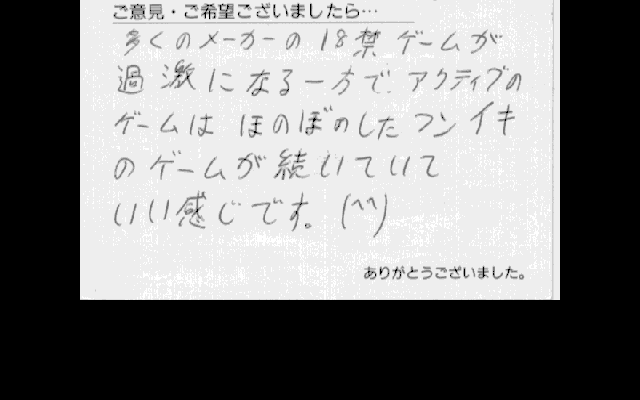 ご意見・ご希望ございましたら…
多くのメーカーの 18禁 ゲームが
過激になる一方で、アクティブの
ゲームは ほのぼのした フンイキ
のゲームが 続いていて
いい感じです。(^^)
ありがとうございました。